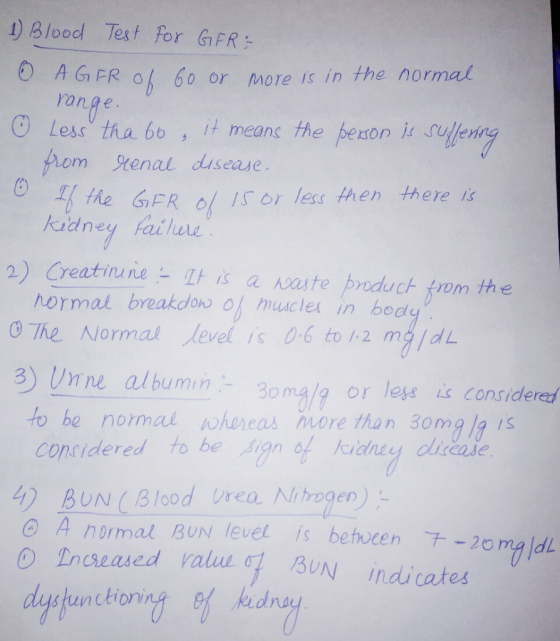 1) Blood Test For GFR :-
⊙ A GFR of 60 or more is in the normal
range.
⊙ Less tha 60 , it means the person is suffering
from renal disease.
⊙ If the GFR of 15 or less then there is
kidney failure.
2) Creatinine :- It is a waste product from the
normal breakdow of muscles in body.
⊙ The Normal level is 0.6 to 1.2 mg/dL
3) Urine albumin :- 30mg/g or less is considered
to be normal whereas more than 30mg/g is
considered to be sign of kidney disease.
4) BUN (Blood Urea Nitrogen) :-
⊙ A normal BUN level is between 7 - 20mg/dL
⊙ Increased value of BUN indicates
dysfunctioning of kidney.